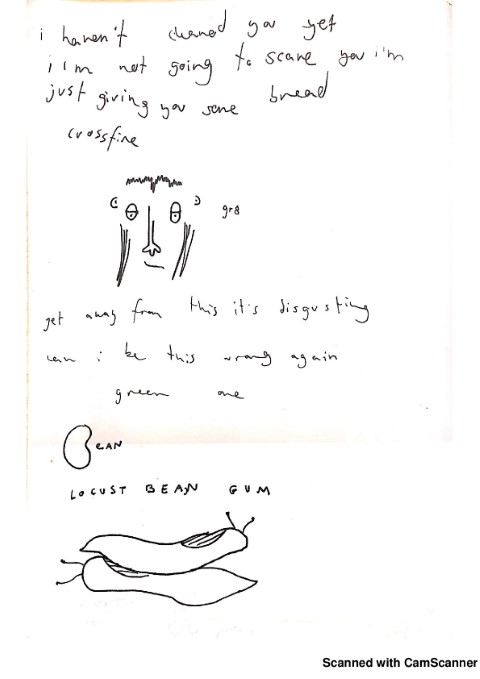 i haven't you yet
i i'm not going to scare you i'm
just giving you some bread
crossfire
gr8
get away from this it's disgusting
can i be this wrong again
green one
BEAN
LOCUST BEAN GUM
Scanned with CamScanner